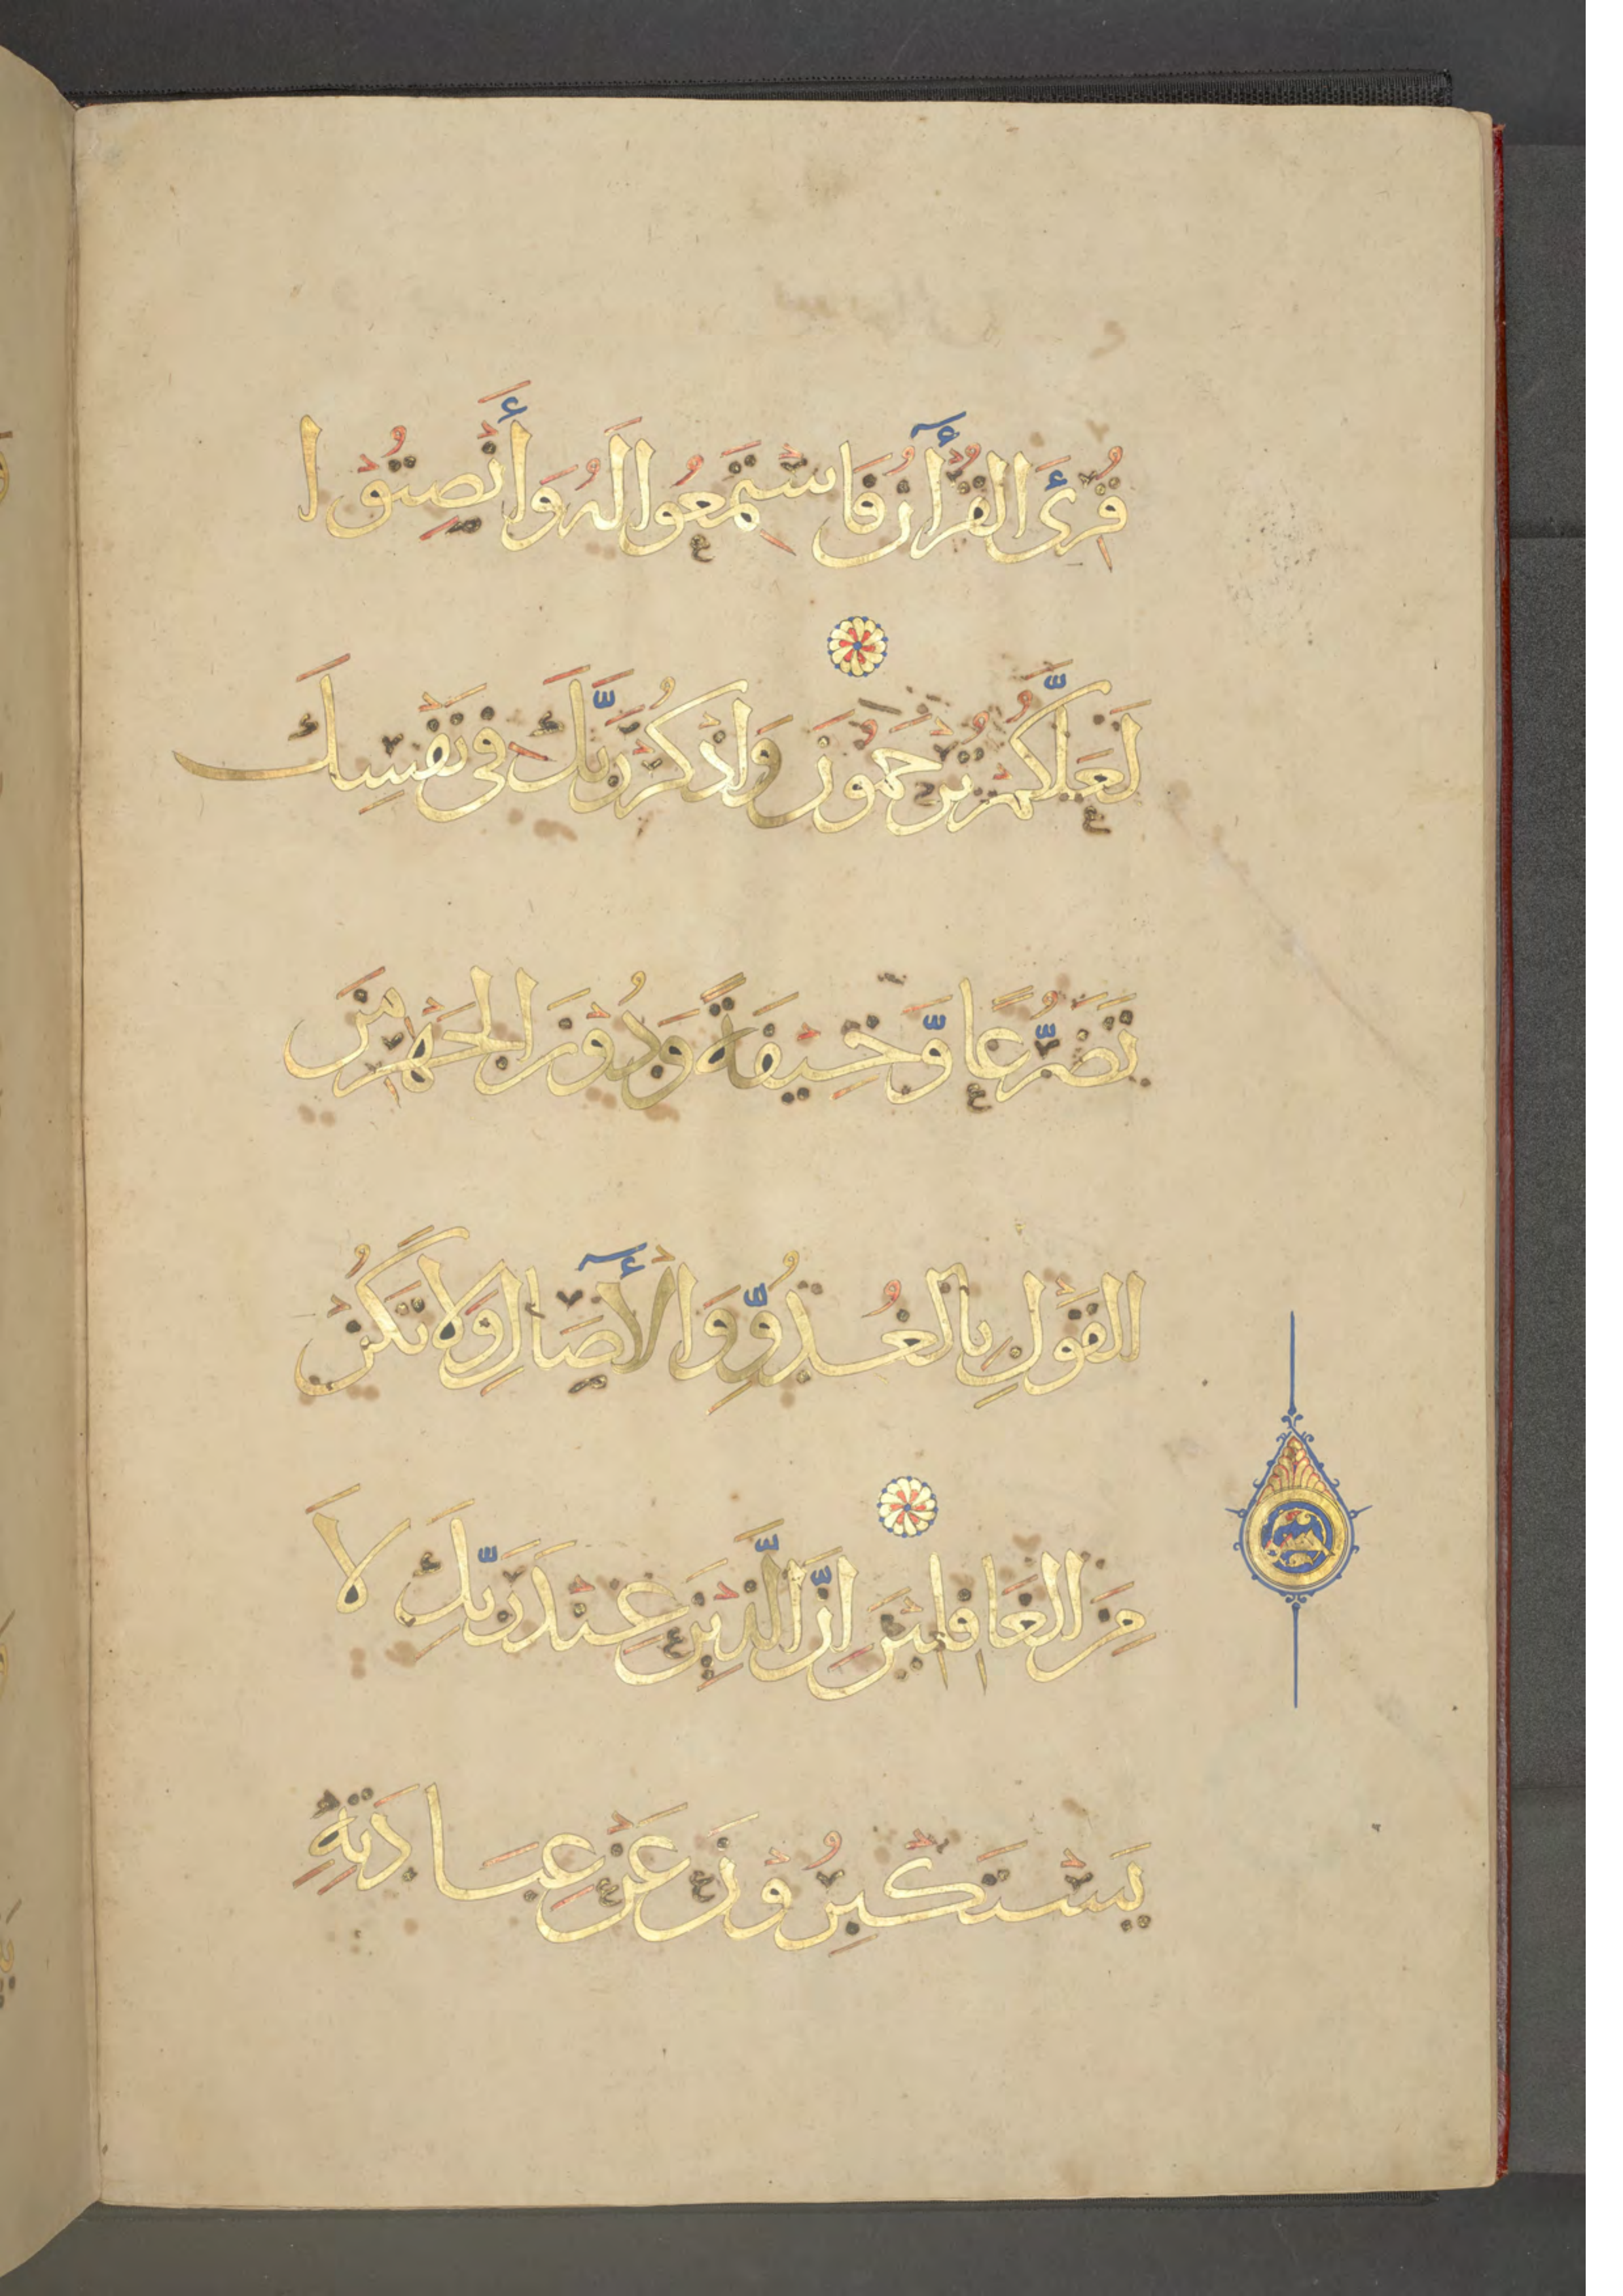 قُرِئَ الْقُرْآنُ فَاسْتَمِعُوا لَهُ وَأَنْصِتُوْا
لَعَلَّكُمْ تُرْحَمُوْنَ وَاذْكُرْ رَبَّكَ فِي نَفْسِكَ
تَضَرُّعًا وَّخِيْفَةً وَدُوْنَ الْجَهْرِ مِنَ
الْقَوْلِ بِالْغُدُوِّ وَالْأَصَالِ وَلَا تَكُنْ
مِنَ الْغَافِلِيْنَ اِنَّ الَّذِيْنَ عِنْدَ رَبِّكَ لَا
يَسْتَكْبِرُوْنَ عَنْ عِبَادَتِهِ